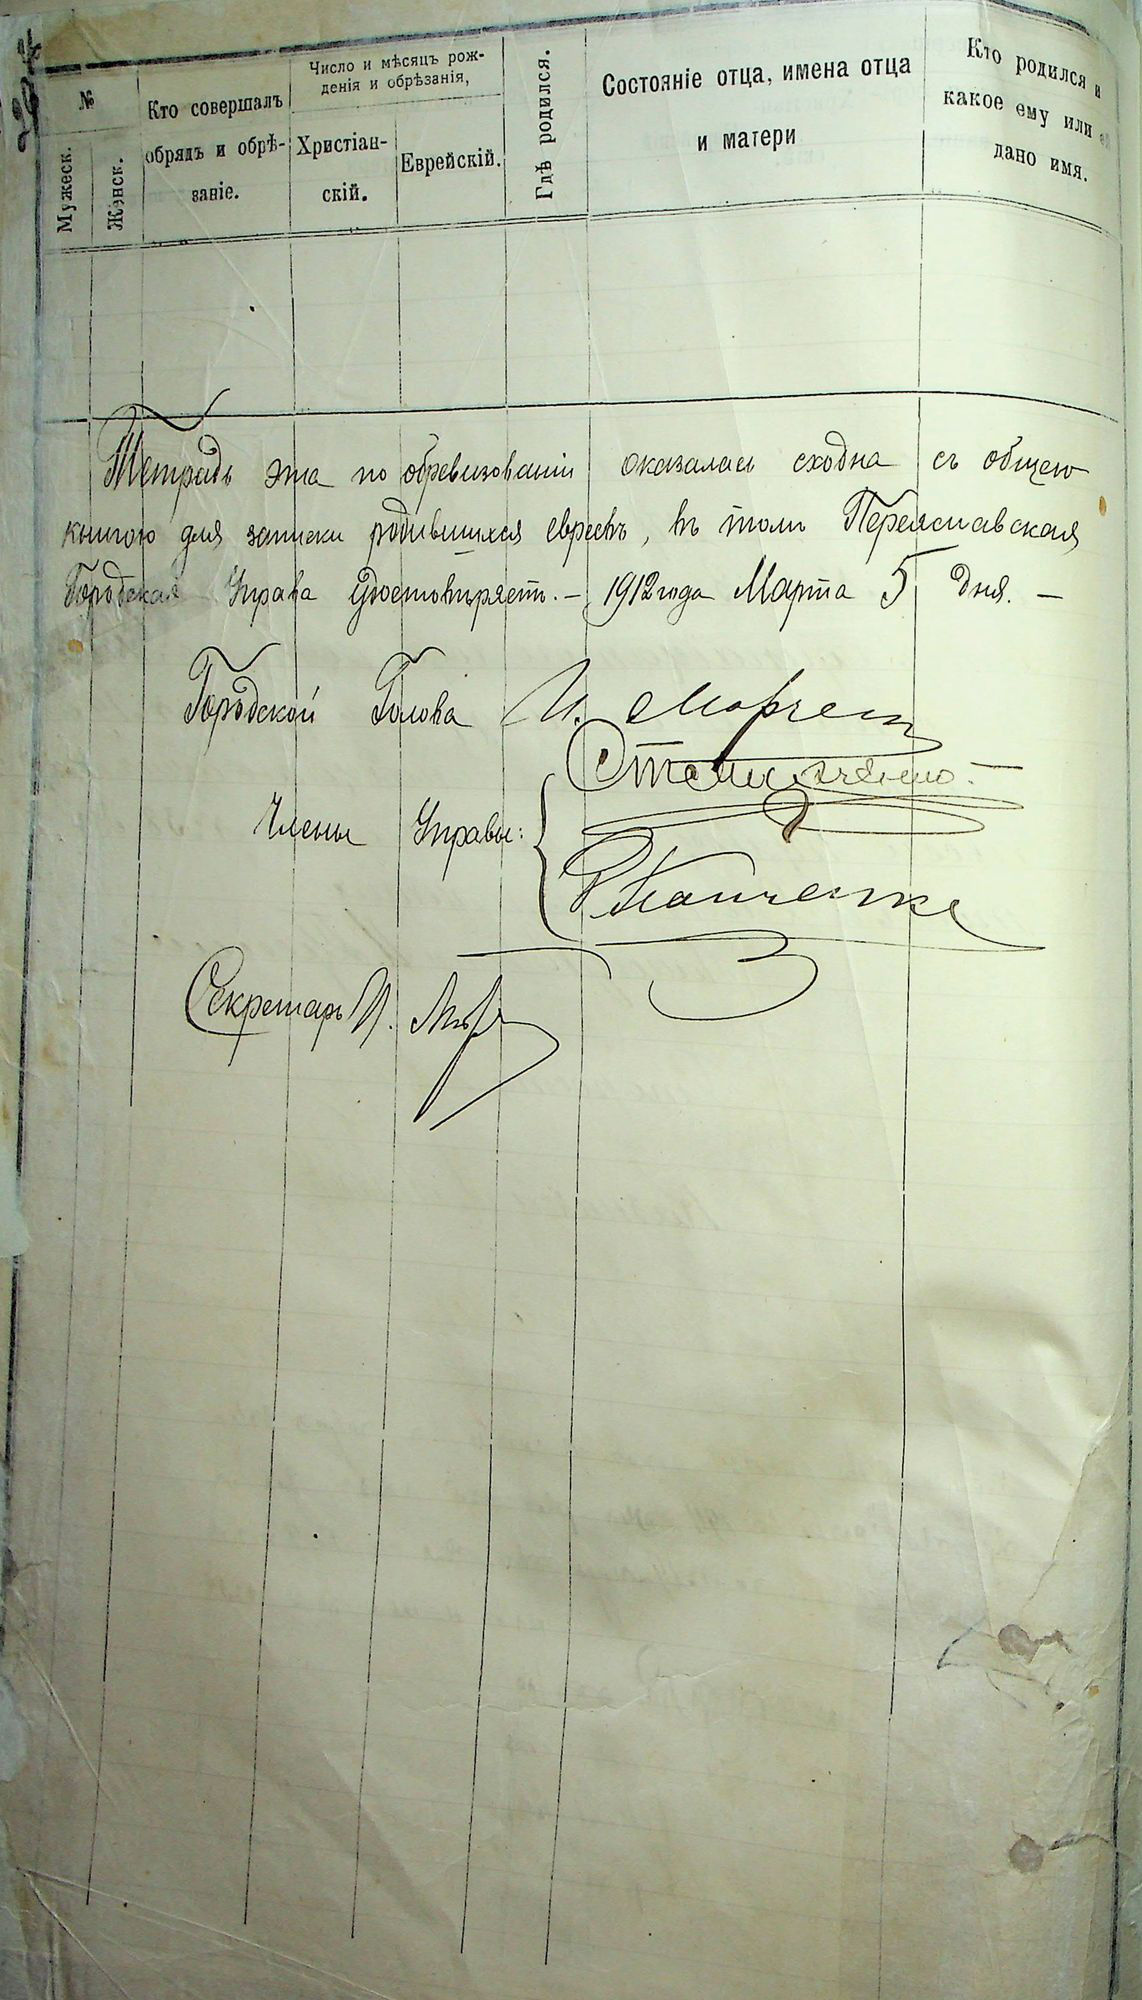 №
Мужеск.
Женск.
Кто совершалъ
обрядъ и обрѣ-
заніе.
Число и мѣсяцъ рож-
денія и обрѣзанія,
Христіан-
скій.
Еврейскій.
Гдѣ родился.
Состояніе отца, имена отца
и матери
Кто родился и
какое ему или ей
дано имя.
Тетрадь эта по обревизованіи оказалась сходна съ общею
книгою для записки родившихся евреевъ, въ томъ Переяславская
Городская Управа удостовѣряетъ. — 1912 года Марта 5 дня. —
Городской Голова И.
Члены Управы:
Секретарь И.